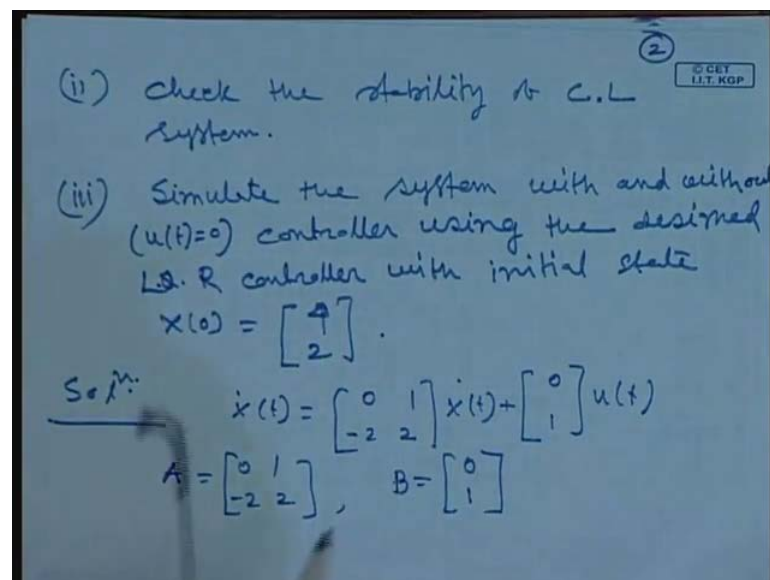 ②
© CET
I.I.T. KGP
(ii) Check the stability of C.L
system.
(iii) Simulate the system with and without
(u(t)=0) controller using the desired
L.Q.R controller with initial state
x(0) = [4; 2].
Solⁿ: ẋ(t) = [0 1; -2 2] ẋ(t) + [0; 1] u(t)
A = [0 1; -2 2], B = [0; 1]